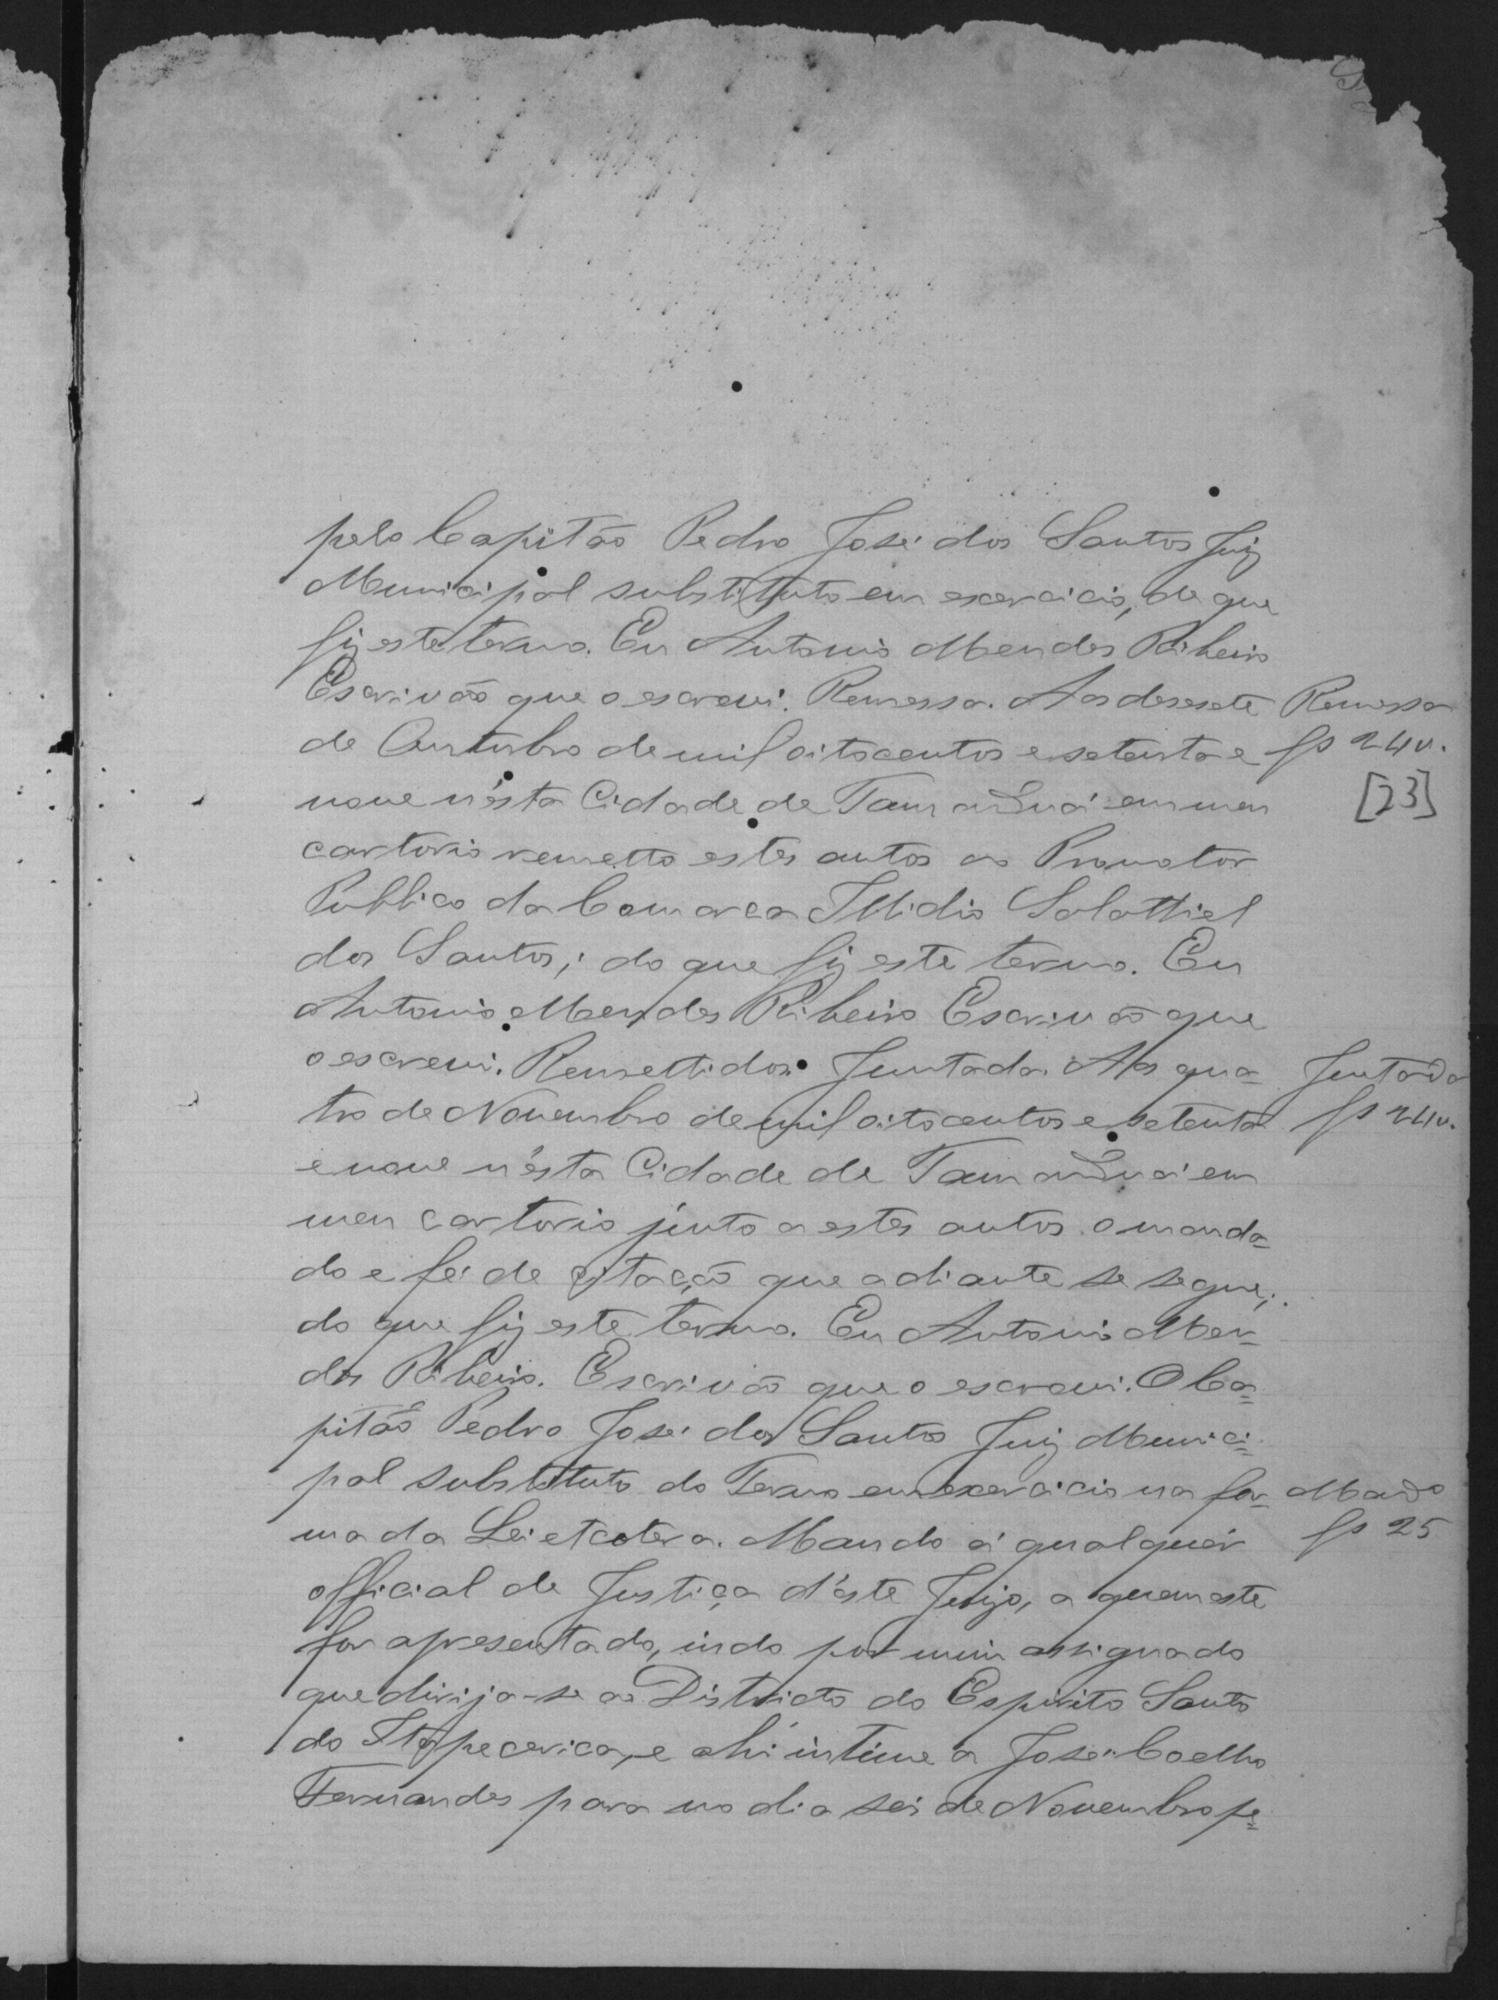 pelo Capitão Pedro José dos Santos Juiz
Municipal substituto em exercicio, de que
fiz este termo. Eu Antonio Mendes Ribeiro
Escrivão que o escrevi. Remessa. Aos desesete
Remessa
de Outubro de mil oitocentos e setenta e
fs 24v.
nove n'ésta Cidade de Tamanduá em meu
[23]
cartorio remetto estes autos ao Promotor
Publico da Comarca Illidio Salathiel
dos Santos; do que fiz este termo. Eu
Antonio Mendes Ribeiro Escrivão que
o escrevi. Remettidos. Juntada. Aos qua=
Juntada
tro de Novembro de mil oitocentos e setenta
fs 24v.
e nove n'ésta Cidade de Tamanduá em
meu cartorio junto a estes autos o manda=
do e fé de citação que adiante se segue;
do que fiz este termo. Eu Antonio Men=
des Ribeiro. Escrivão que o escrevi. O Ca=
pitão Pedro José dos Santos Juiz Munici=
pal substituto do Termo em exercicio na for=
Mando
ma da Lei etcetera. Mando á qualquér
fs 25
official de Justiça d'éste Juizo, a quem este
for apresentado, indo por mim assignado
que dirija-se ao Districto do Espirito Santo
do Itapecerica, e ahi intime a José Coelho
Fernandes para no dia seis de Novembro pe=